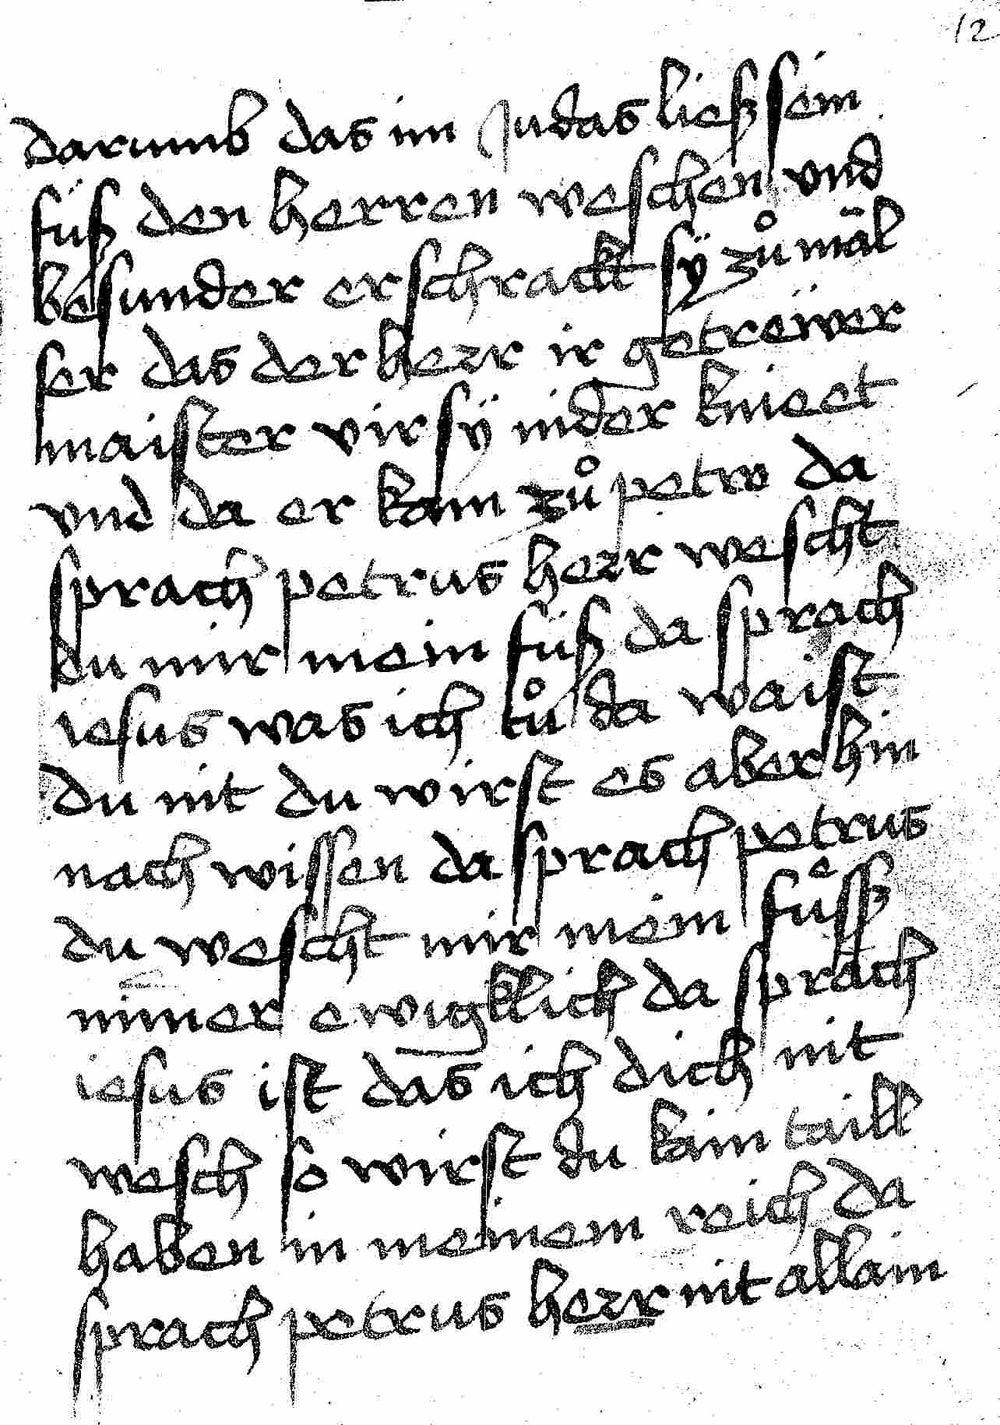 12
darumb das im Judas ließ sein
füß den herren weschen vnd
besunder erschrackt sÿ zů mäl
ser das der herr ir getreẅer
maister vir sÿ nider kneet
vnd da er kam zů petro da
sprach petrus herr wescht
du mir mein füß da sprach
iesus was ich tů da waist
du nit du wirst es aber hin
nach wissen da sprach petrus
du wescht mir mein fuͤsß
nimer ewigklich da sprach
iesus ist das ich dich nit
wesch so wirst du kain taill
haben in meinem reich da
sprach petrus herr nit allain